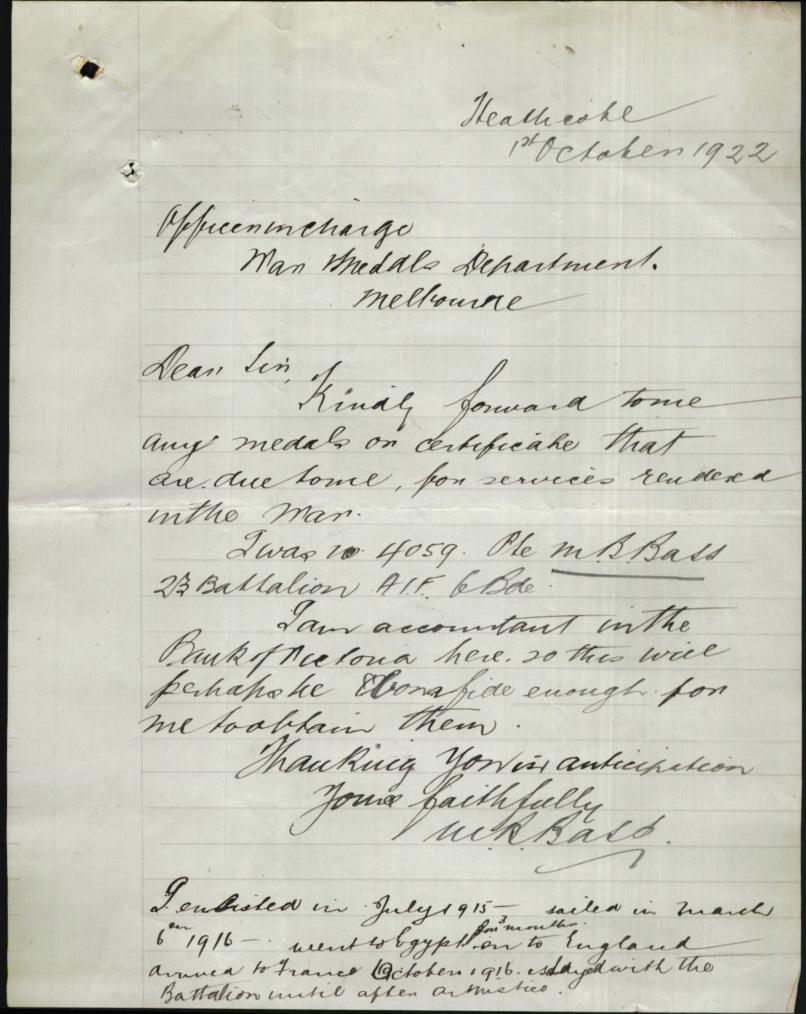 Heathcote
1st October 1922
Officer in charge
War Medals Department.
Melbourne
Dear Sir,
Kindly forward to me
any medals or certificate that
are due to me, for services rendered
in the War.
I was no 4059. Pte M.R. Bass
23 Battalion A.I.F. 6 Bde.
I am accountant in the
Bank of Victoria here. so this will
perhaps be bonafide enough for
me to obtain them.
Thanking You in anticipation
Yours faithfully
M.R. Bass.
I enlisted in July 1915 — sailed in March
for 3 months
6th 1916 — went to Egypt on to England
arrived to France October 1916. & stayed with the
Battalion until after armistice.